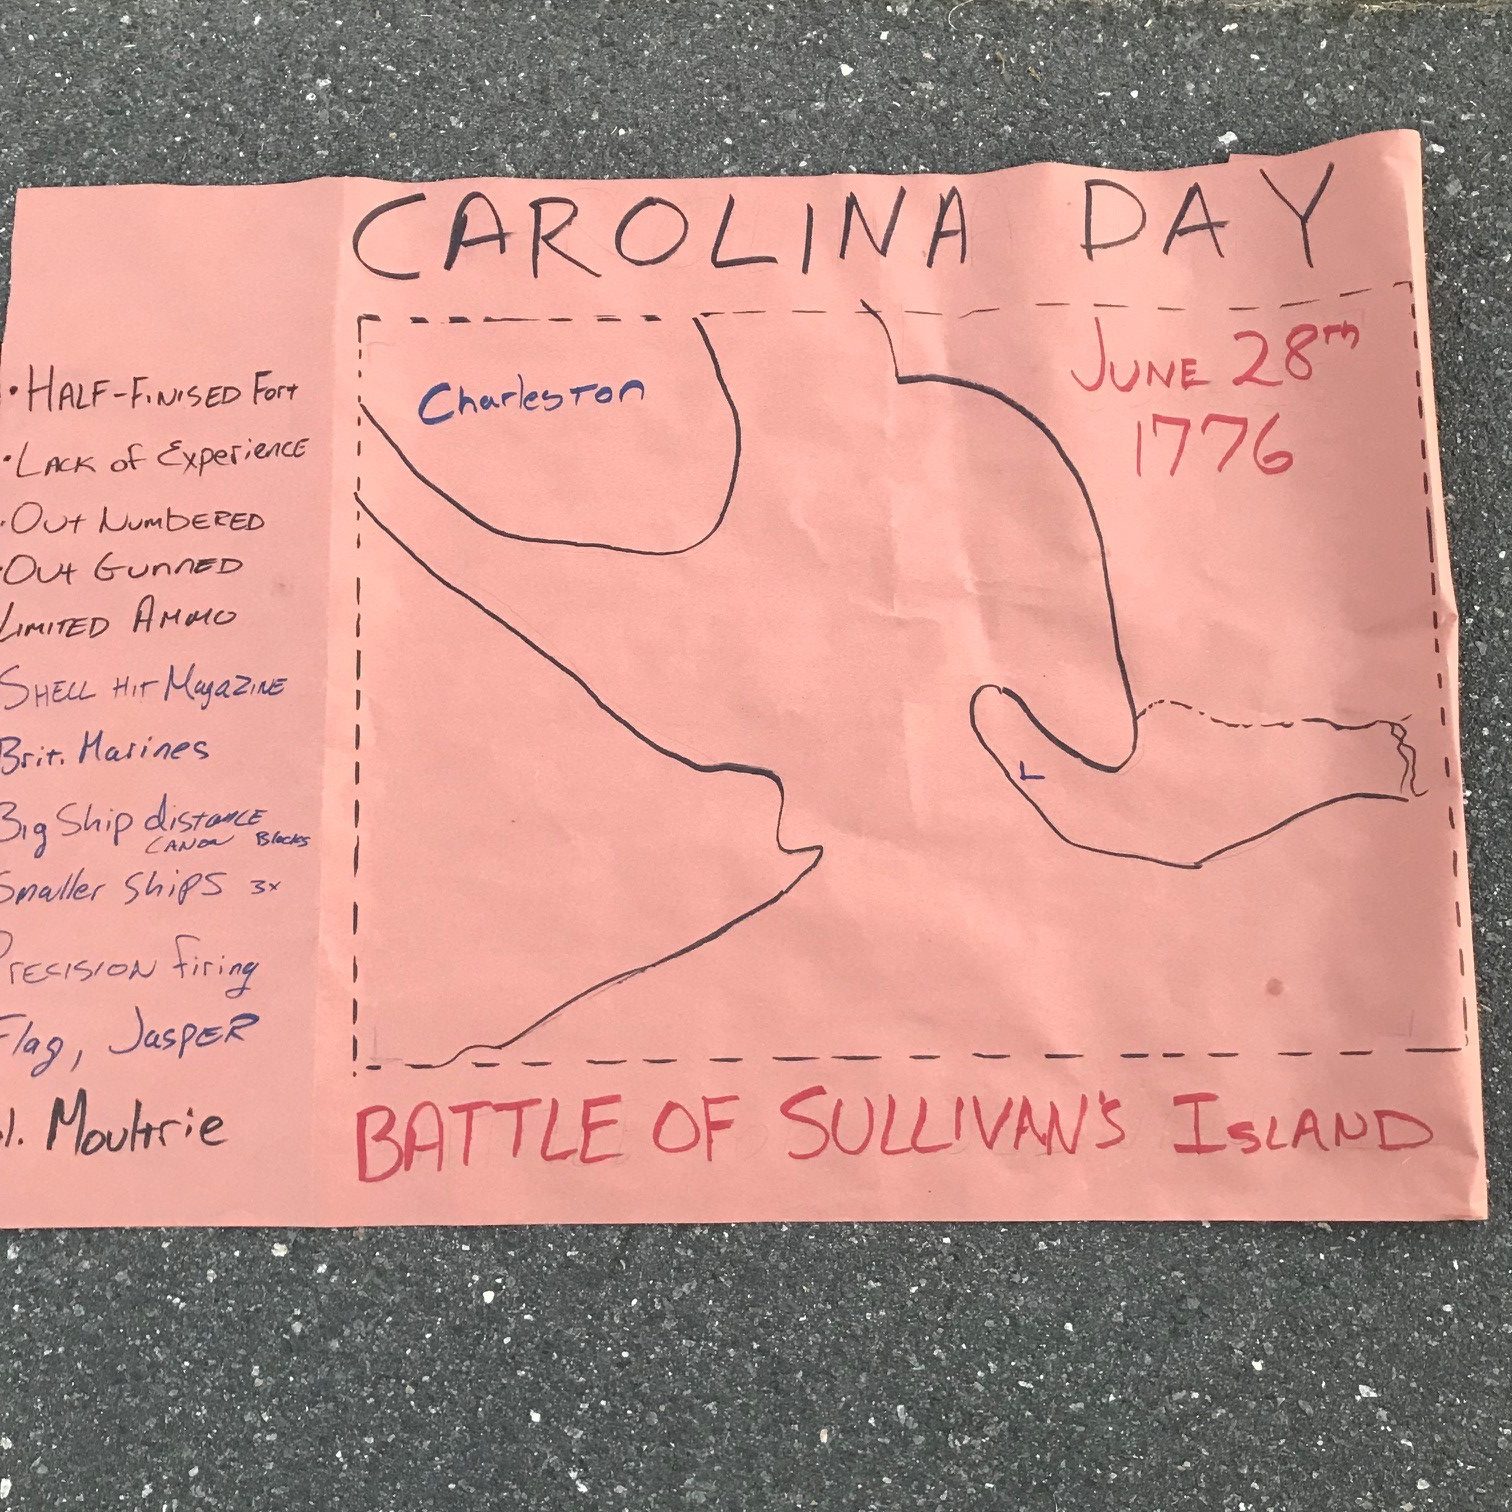 CAROLINA DAY
JUNE 28th
1776
Charleston
L
• HALF-FINISED FORT
• LACK of EXPERIENCE
• OUT NUMBERED
• OUT GUNNED
LIMITED AMMO
SHELL HIT MAGAZINE
Brit. Marines
Big Ship distance
CANON Blocks
Smaller Ships 3x
PRECISION firing
Flag, JASPER
l. Moultrie
BATTLE OF SULLIVAN'S ISLAND